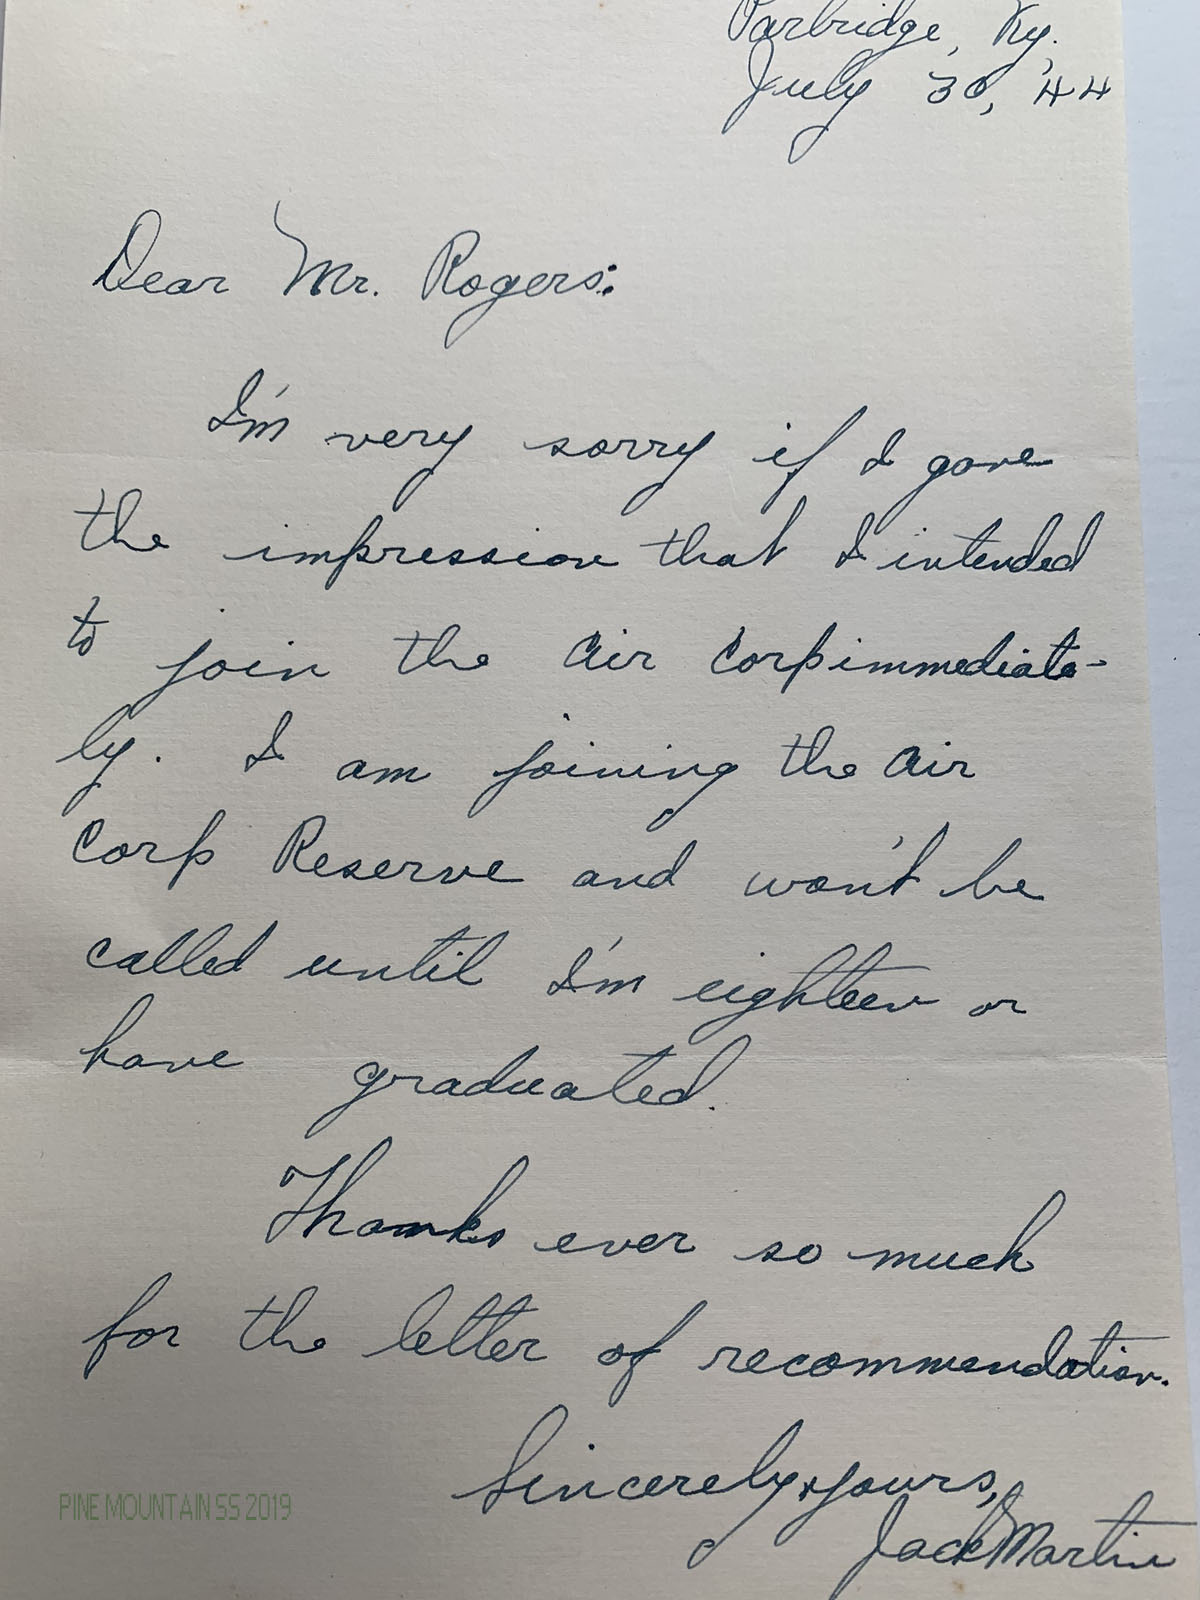 Parbridge, Ky.
July 30, '44
Dear Mr. Rogers:
I'm very sorry if I gave
the impression that I intended
to join the Air Corp immediate-
ly. I am joining the Air
Corp Reserve and won't be
called until I'm eighteen or
have graduated.
Thanks ever so much
for the letter of recommendation.
Sincerely yours,
Jack Martin
PINE MOUNTAIN SS 2019